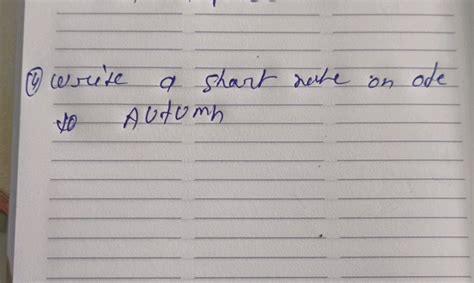 (4) write a short note on ode
to AUtUmn